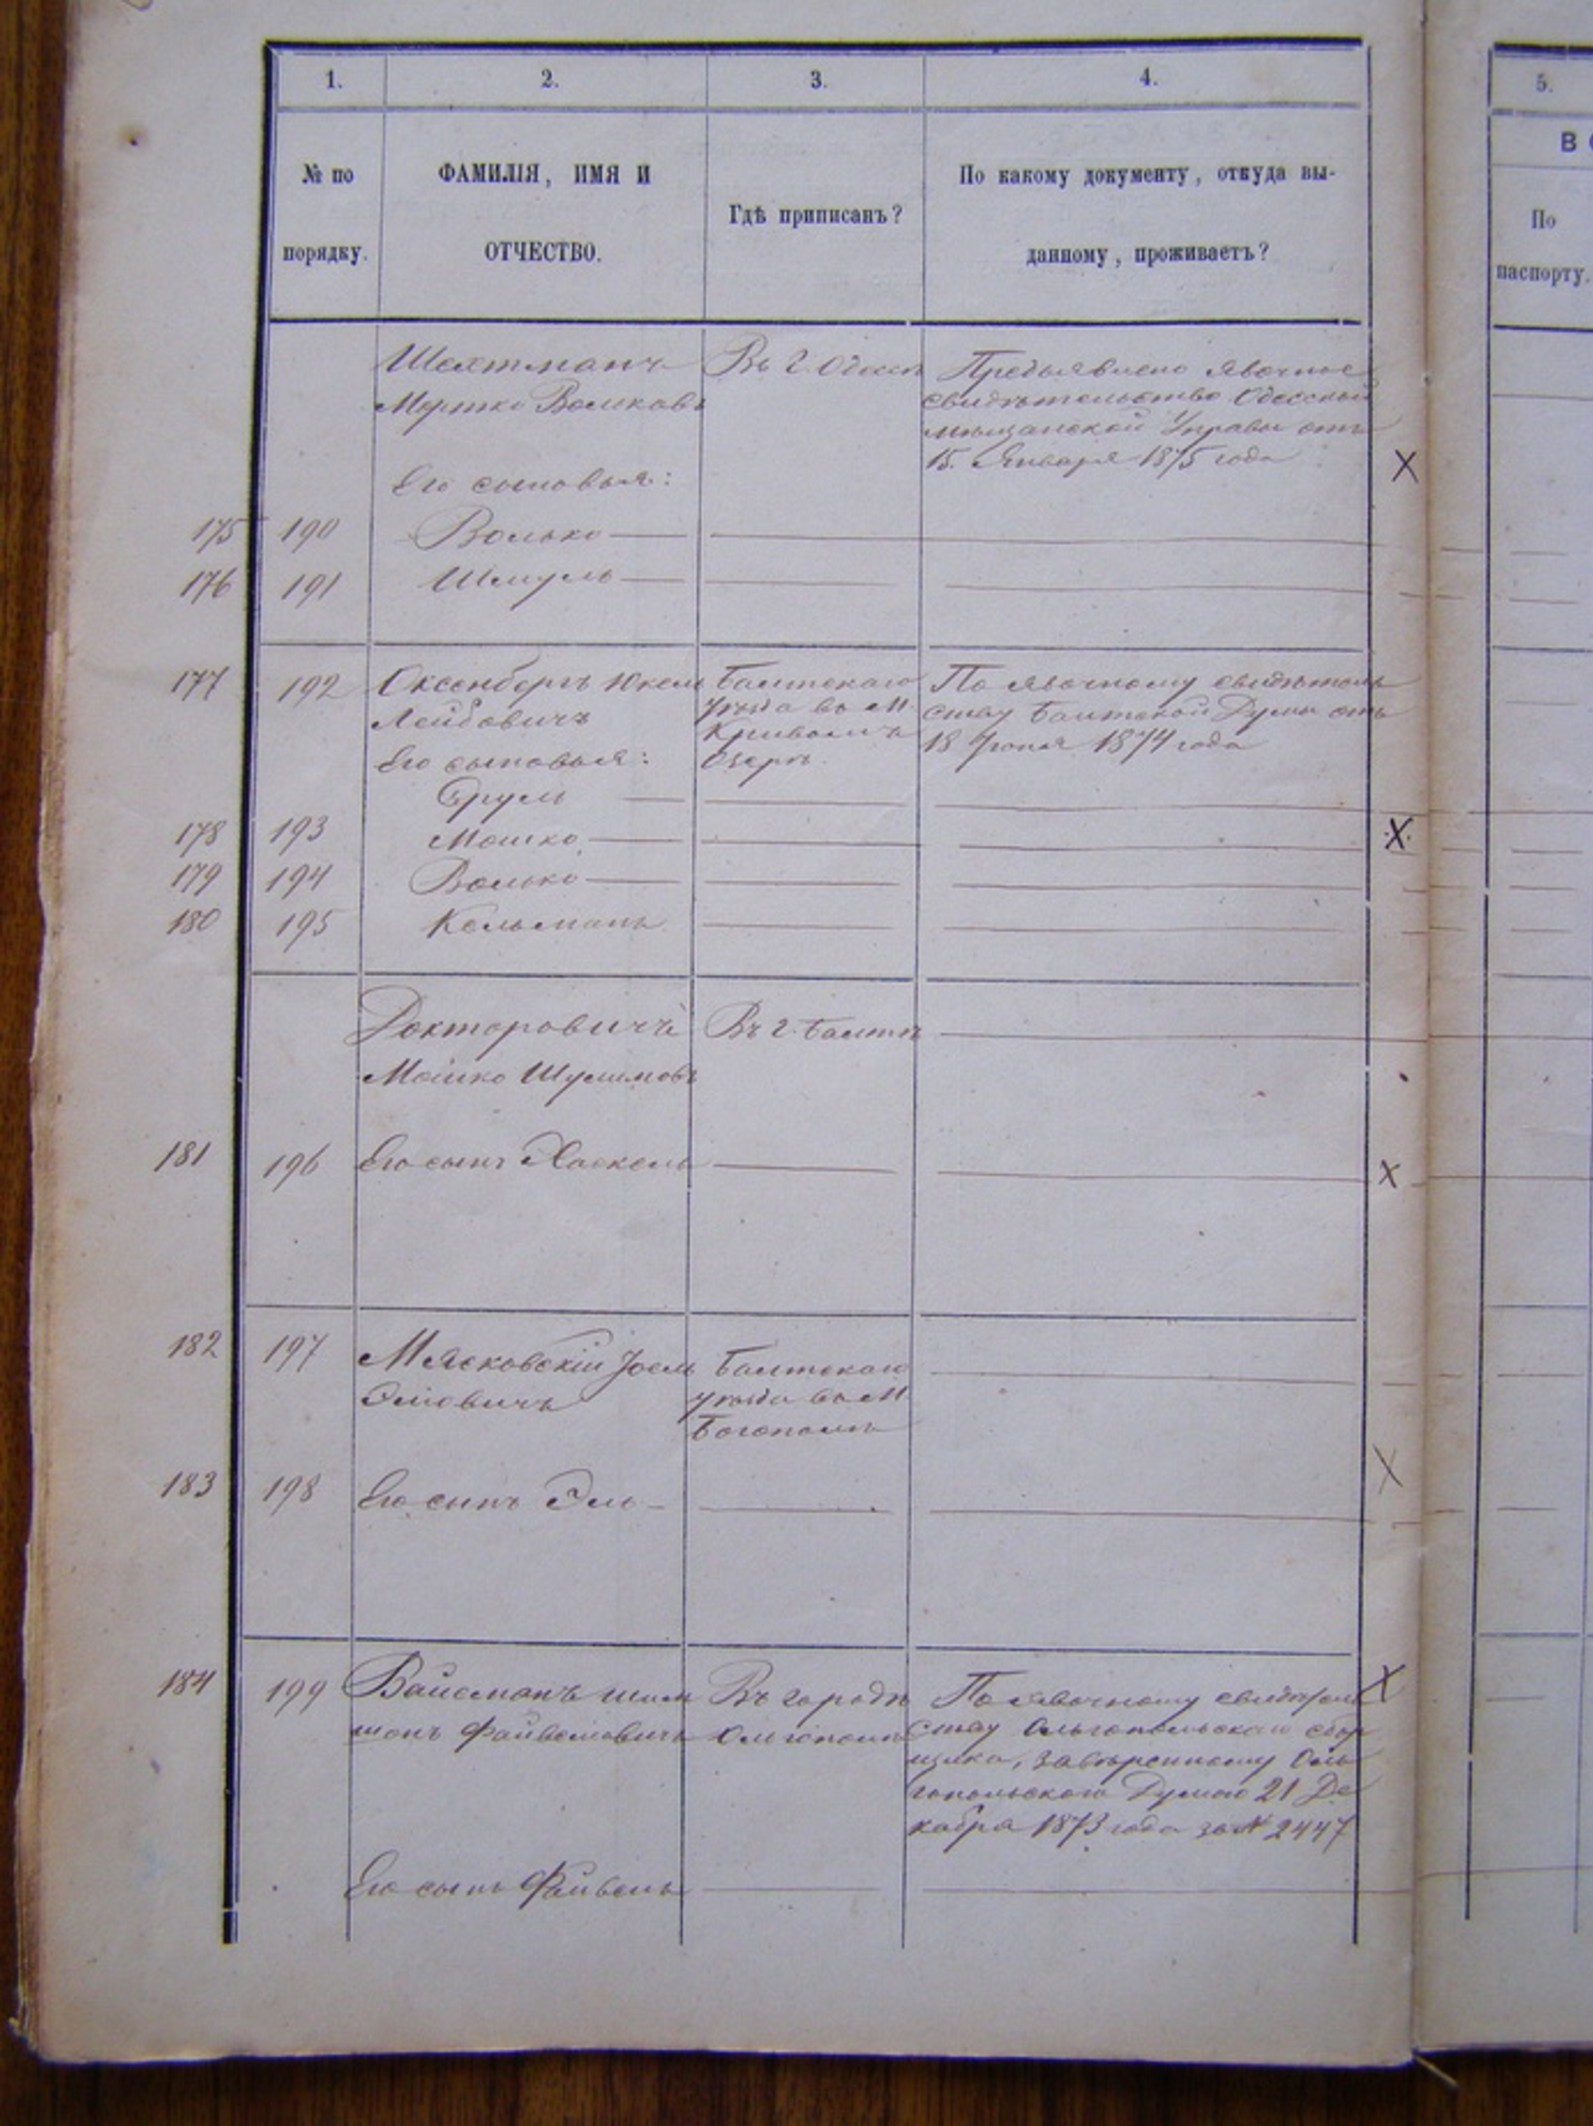 1. 2. 3. 4. 5.
№ по
порядку.
ФАМИЛІЯ, ИМЯ И
ОТЧЕСТВО.
Гдѣ приписанъ?
По какому документу, откуда вы-
данному, проживаетъ?
В
По
паспорту.
Шехтманъ
Мортко Вольковъ
Въ г. Одессѣ
Предъявлено явочное
свидѣтельство Одесской
мѣщанской Управы отъ
15. Января 1875 года
Его сыновья:
175 190 Волько
176 191 Шмуль
177 192 Оксенбергъ Юкель
Лейбовичъ
Балтскаго
уѣзда въ М.
Кривомъ
Озерѣ
По явочному свидѣтель
ству Балтской Думы отъ
18 Іюня 1874 года
Его сыновья:
Срулъ
178 193 Мошко
179 194 Волько
180 195 Кельманъ
Докторовичъ
Мошко Шулимовъ
Въ г. Балтѣ
181 196 Его сынъ Хаскель
182 197 Мясковскій Іоель
Эліовичъ
Балтскаго
уѣзда въ М
Богополѣ
183 198 Его сынъ Эль
184 199 Вайсманъ Шим
шонъ Файвелевичъ
Въ городѣ
Ольгополѣ
По явочному свидѣтель
ству Ольгопольскаго сбор
щика, завѣренному Оль
гопольскою Думою 21 Де
кабря 1873 года за № 2447
Его сынъ Файвель